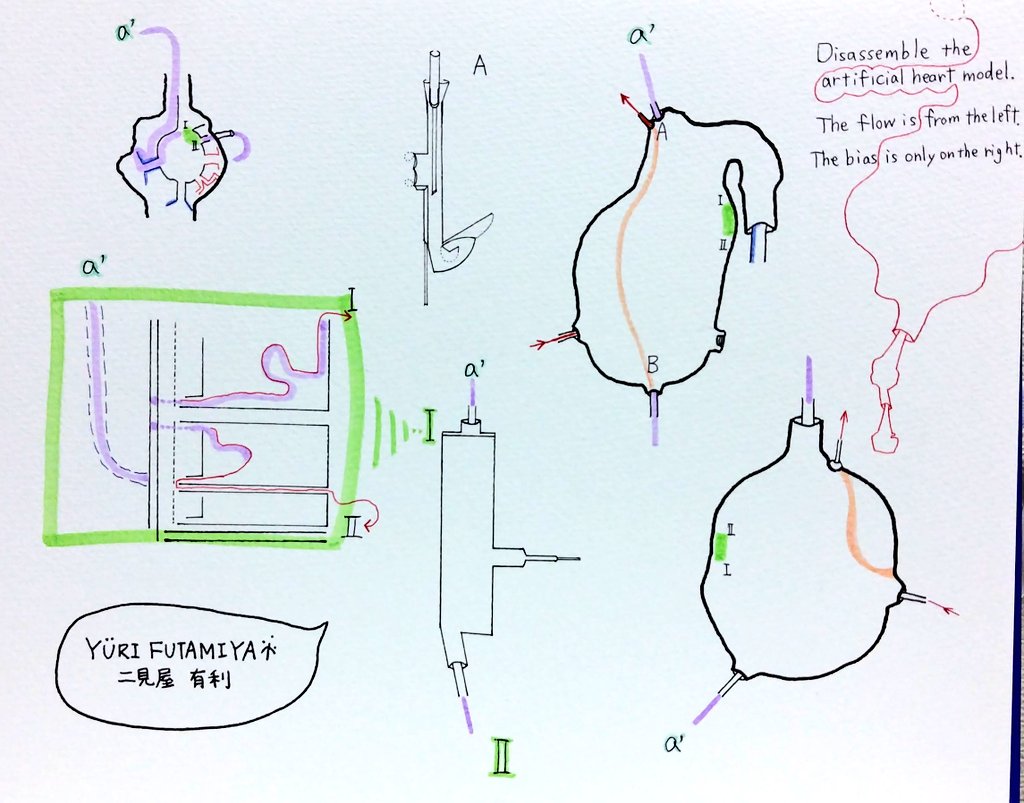 a'
A
a'
Disassemble the
artificial heart model.
The flow is from the left.
The bias is only on the right.
I
II
A
I
II
B
a'
I
II
a'
I
II
II
I
a'
YÜRI FUTAMIYA
二見屋 有利